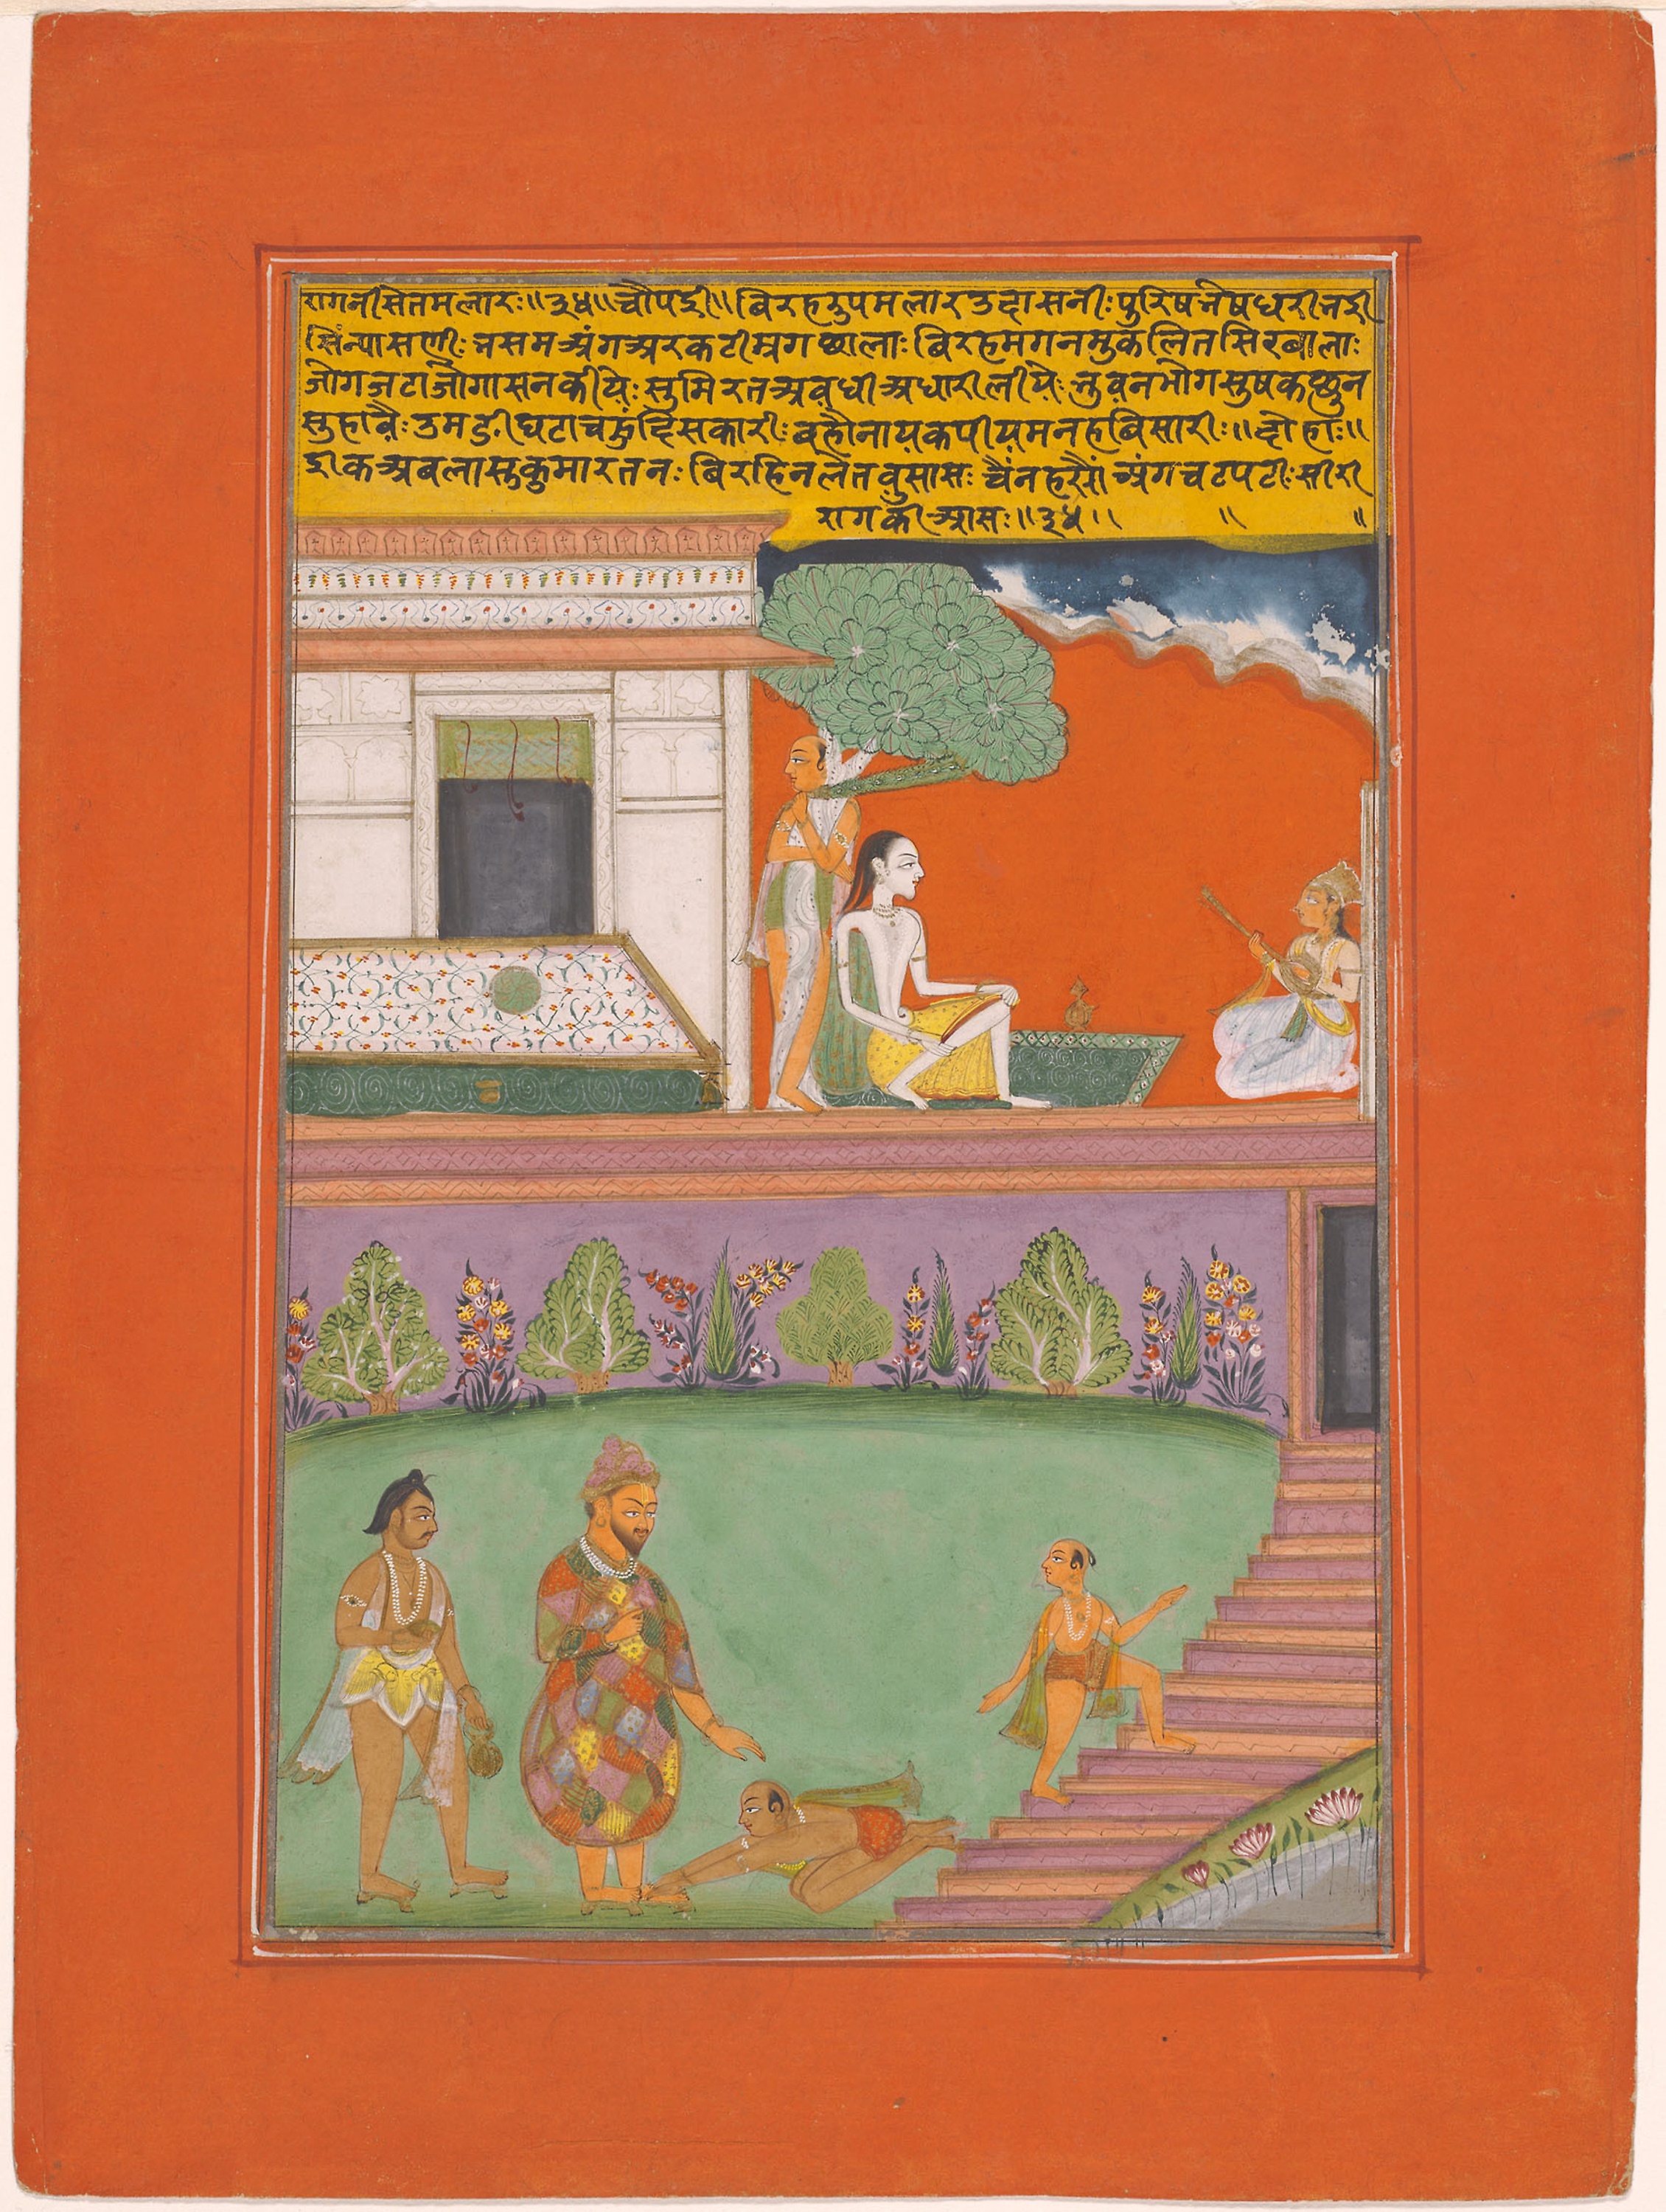 रागनी सेतमलारः॥३५॥ चौपई॥ बिरह रुप मलार उदासनीः पुरिष भेष धरी भई
सिंन्यासणीः भसम अंग अर कटी म्रगछालाः बिरह मगन मुकलित सिर बालाः
जोग जटा जोगासन कीयेः सुमिरत अवधी अधारी लीयेः भुवन भोग सुष कछु न
सुहावैः उमडी घटा चहुं दिस कारीः
ईक अबला सुकुमार तनः बिरहिन लेत उसासः चैंन हरसौं अंग चटपटीः सीरी
राग की आसः॥३५॥ ॥ ॥